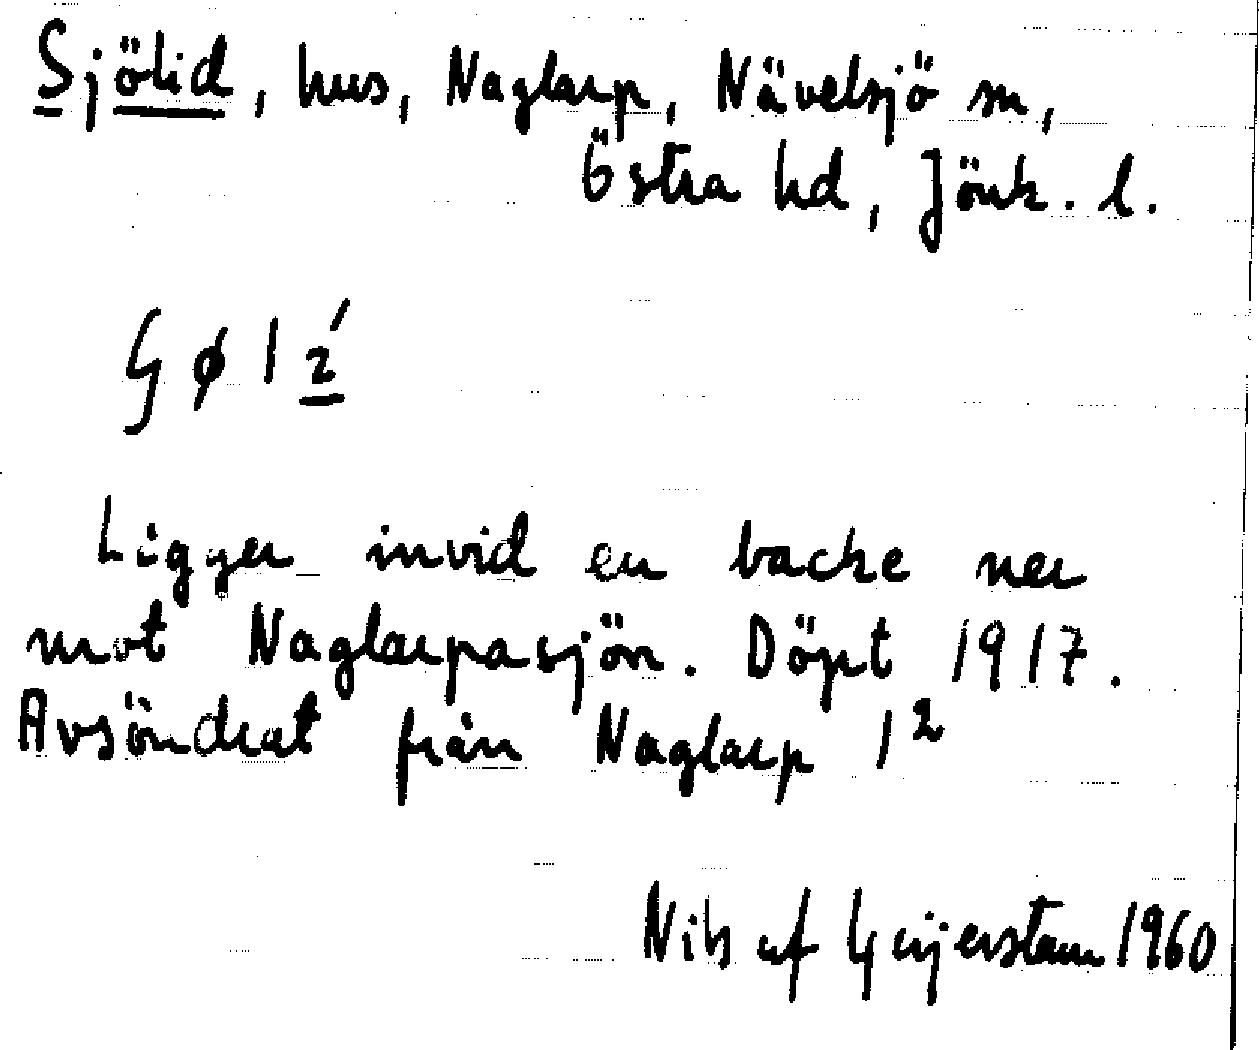 Sjölid, hus, Naglarp, Nävelsjö sn,
Östra hd, Jönk. l.
G ø 1 2́
Ligger invid en backe ner
mot Naglarpasjön. Döpt 1917.
Avsöndrat från Naglarp 1²
Nils af Geijerstam 1960